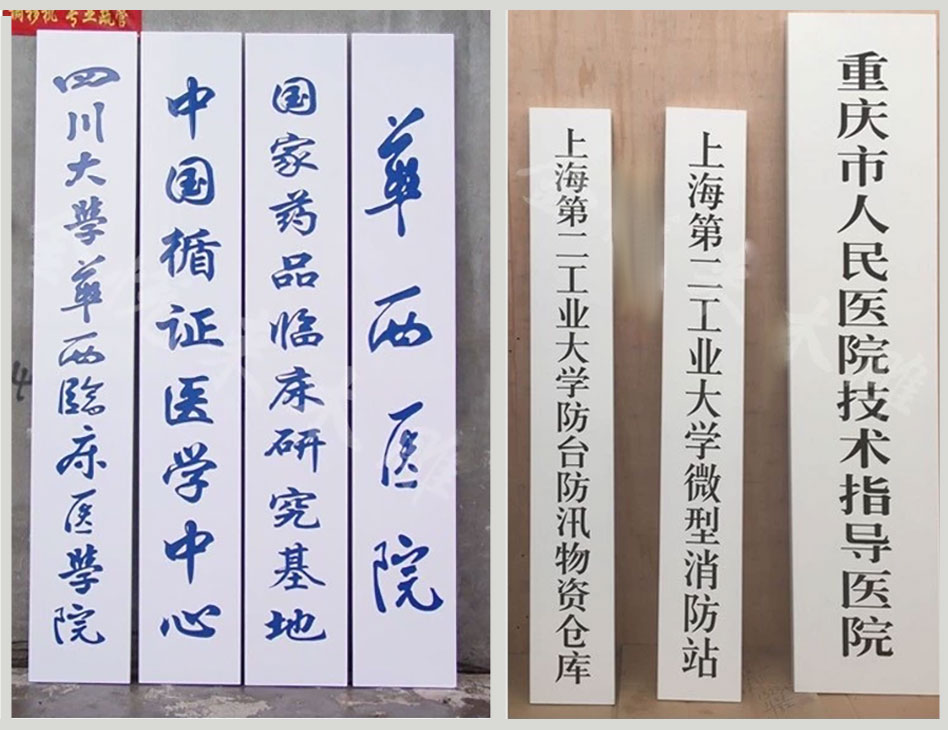 专业疏管
四川大學華西臨床医學院
中国循证医学中心
国家药品临床研究基地
華西医院
上海第二工业大学防台防汛物资仓库
上海第二工业大学微型消防站
重庆市人民医院技术指导医院